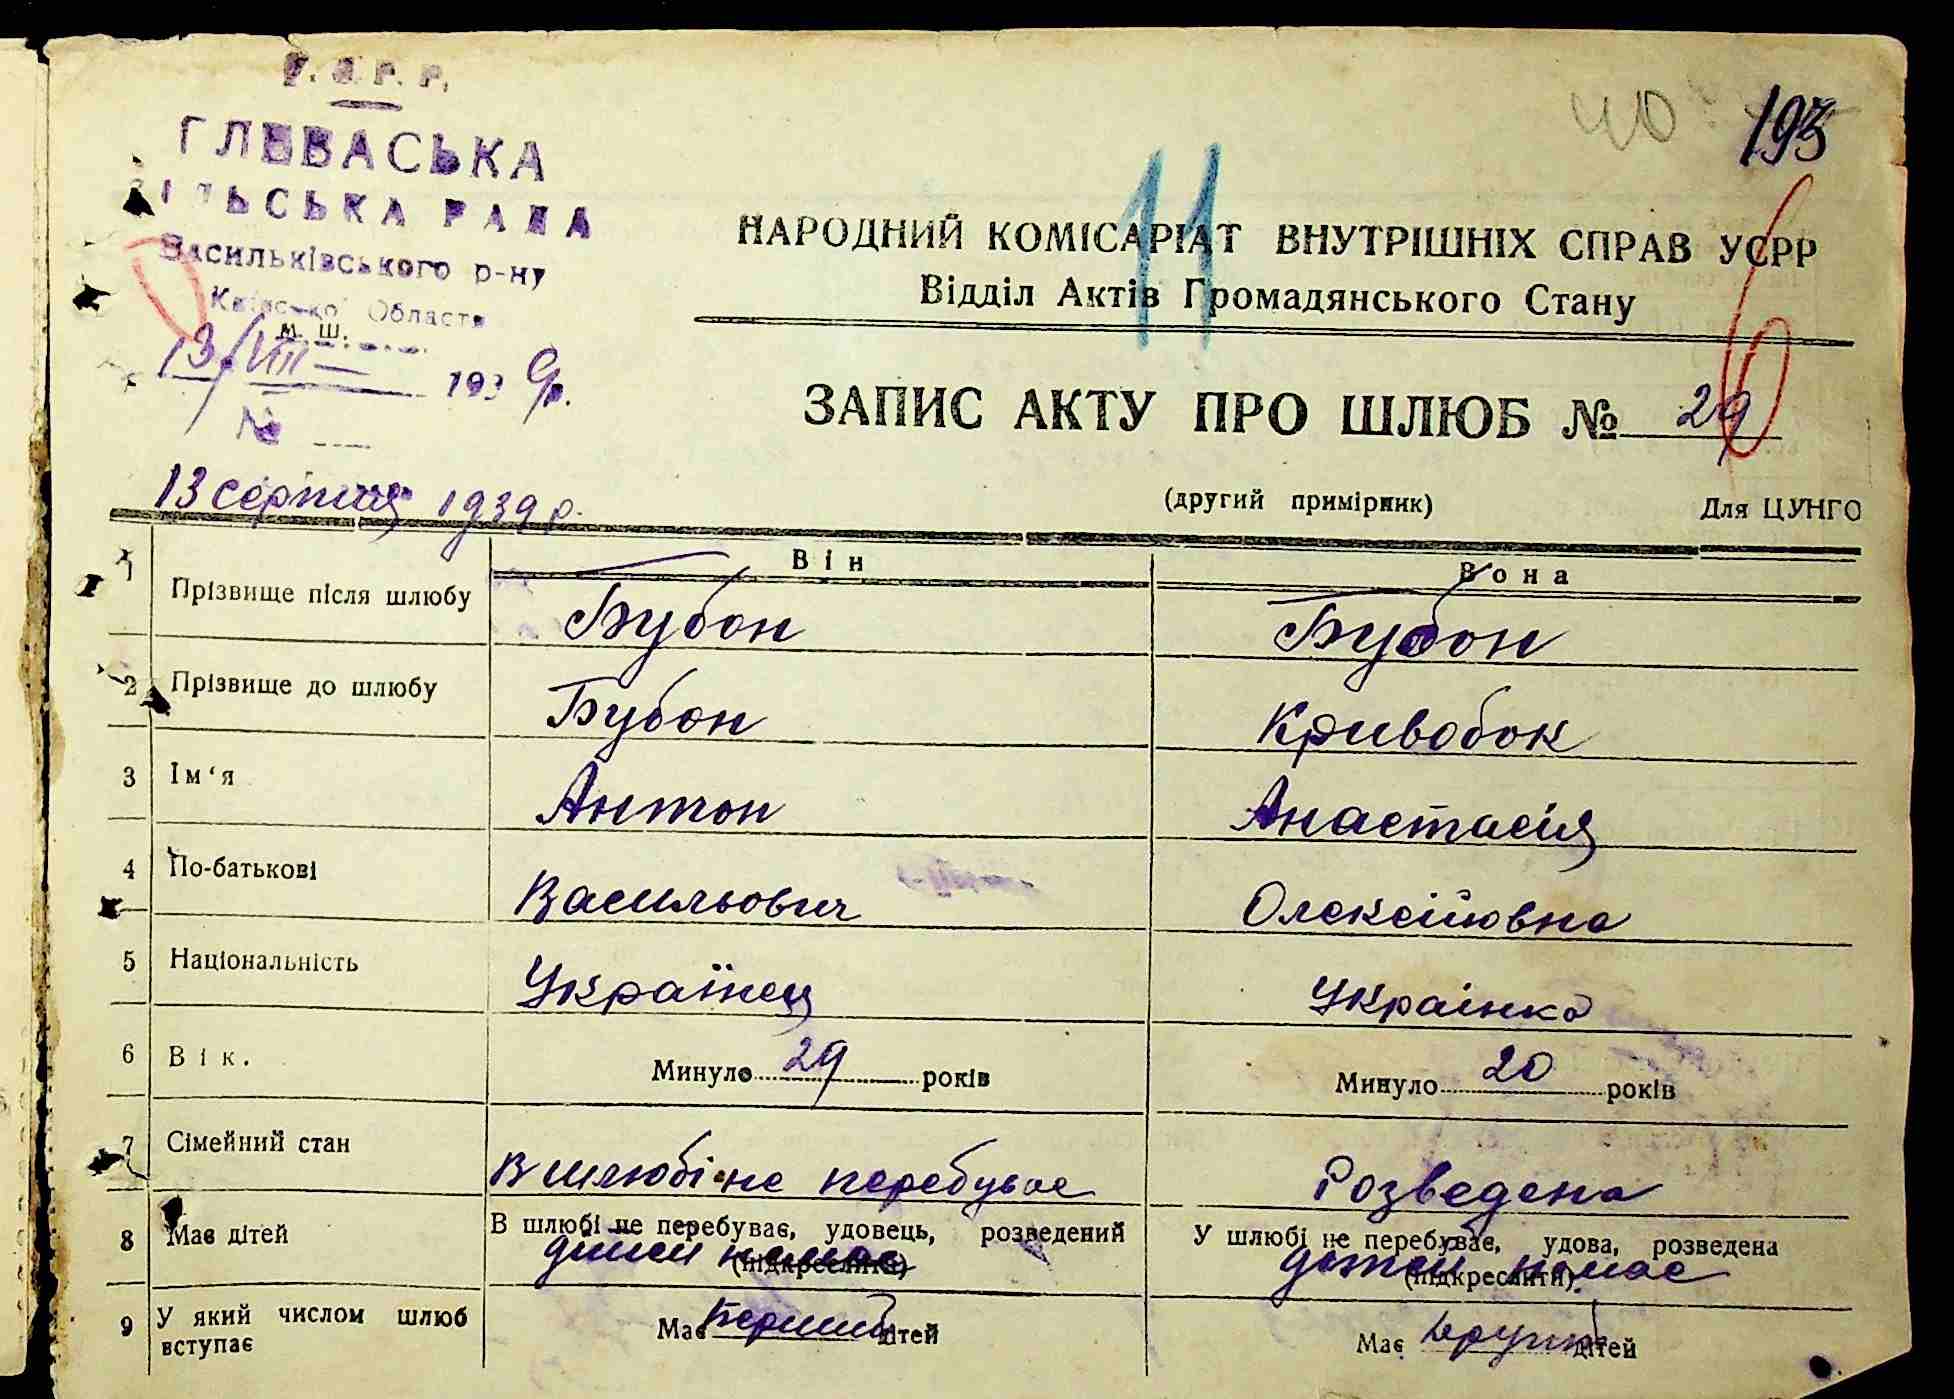 У.С.Р.Р.
ГЛЕВАСЬКА
СІЛЬСЬКА РАДА
Васильківського р-ну
Київської Області
м. ш.
13/VIII 1939 р.
№
40
193
11
6
НАРОДНИЙ КОМІСАРІАТ ВНУТРІШНІХ СПРАВ УСРР
Відділ Актів Громадянського Стану
ЗАПИС АКТУ ПРО ШЛЮБ № 29
13 серпня 1939 р.
(другий примірник) Для ЦУНГО
Він Вона
1 Прізвище після шлюбу Бубон Бубон
2 Прізвище до шлюбу Бубон Кривобок
3 Ім'я Антон Анастасія
4 По-батькові Васильович Олексійовна
5 Національність Українец Украінка
6 Вік. Минуло 29 років Минуло 20 років
7 Сімейний стан В шлюбі не перебуває Розведена
8 Має дітей В шлюбі не перебуває, удовець, розведений У шлюбі не перебуває, удова, розведена
дітей немає дітей немає
(підкреслити) (підкреслити)
9 У який числом шлюб вступає Має перший дітей Має другий дітей